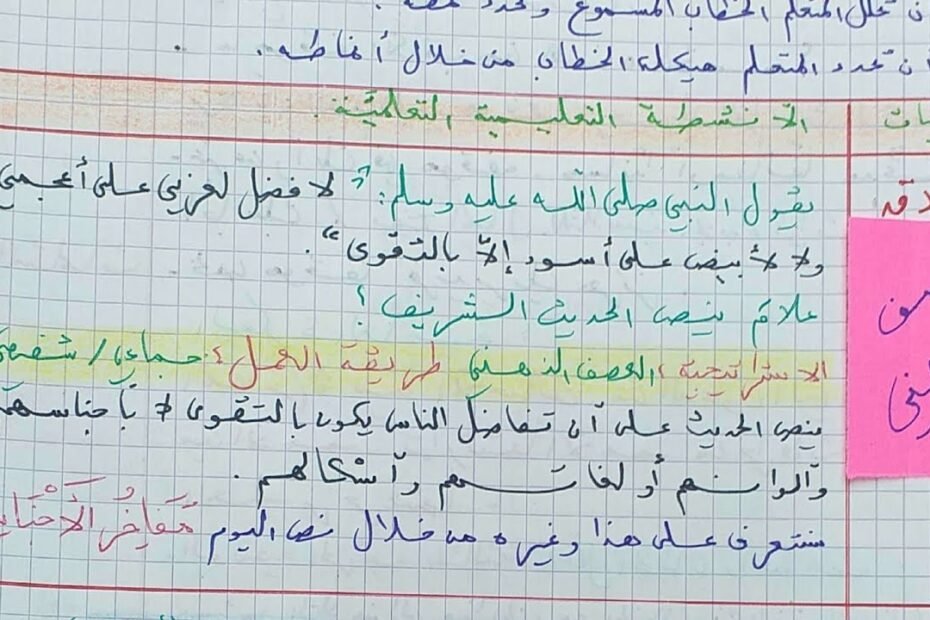 ن تحلل المتعلم الخطاب المسموع وتحدد نمطه.
أن تحدد المتعلم هيكلة الخطاب من خلال أنماطه.
الأنشطة التعليمية التعلمية:
يقول النبي صلى الله عليه وسلم: "لا فضل لعربي على أعجمي
ولا لأبيض على أسود إلا بالتقوى".
علام ينص الحديث الشريف؟
الاستراتيجية: العصف الذهني طريقة العمل: جماعي/ شفهي
ينص الحديث على أن تفاضل الناس يكون بالتقوى لا بأجناسهم
وألوانهم أو لغاتهم وأشكالهم.
سنتعرف على هذا وغيره من خلال نص اليوم تَفَاخُر الأَجْنَا